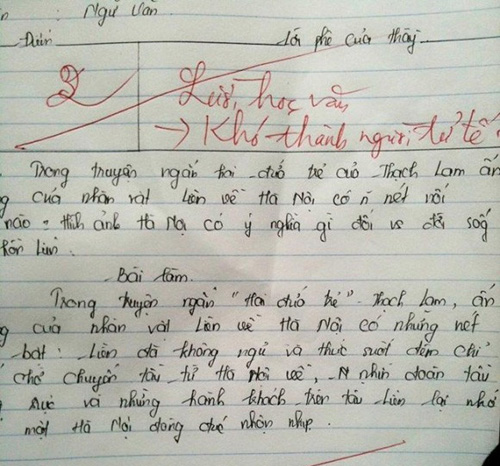 : Ngữ Văn
Điểm Lời phê của thầy
2 Lười học văn
→ Khó thành người tử tế
Trong truyện ngắn hai đứa trẻ của Thạch Lam ấn
g của nhân vật Liên về Hà Nội có n nét nổi
nào = Hình ảnh Hà Nội có ý nghĩa gì đối vs đời sống
hồn Liên.
Bài làm.
Trong truyện ngắn "Hai đứa trẻ" - Thạch Lam, ấn
g của nhân vật Liên về Hà Nội có những nét
bật: Liên đã không ngủ và thức suốt đêm chỉ
chờ chuyến tàu từ Hà Nội về, nhìn đoàn tàu
rực và những hành khách trên tàu Liên lại nhớ
một Hà Nội đông đúc nhộn nhịp.